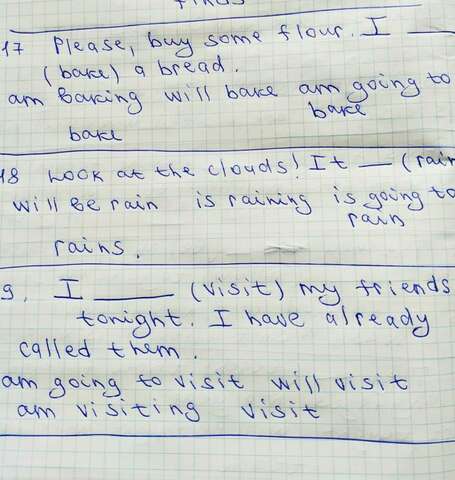 17 Please, buy some flour. I ___
(bake) a bread.
am baking will bake am going to
bake
bake
18 Look at the clouds! It __ (rain
will be rain is raining is going to
rain
rains.
9. I ____ (visit) my friends
tonight. I have already
called them.
am going to visit will visit
am visiting visit